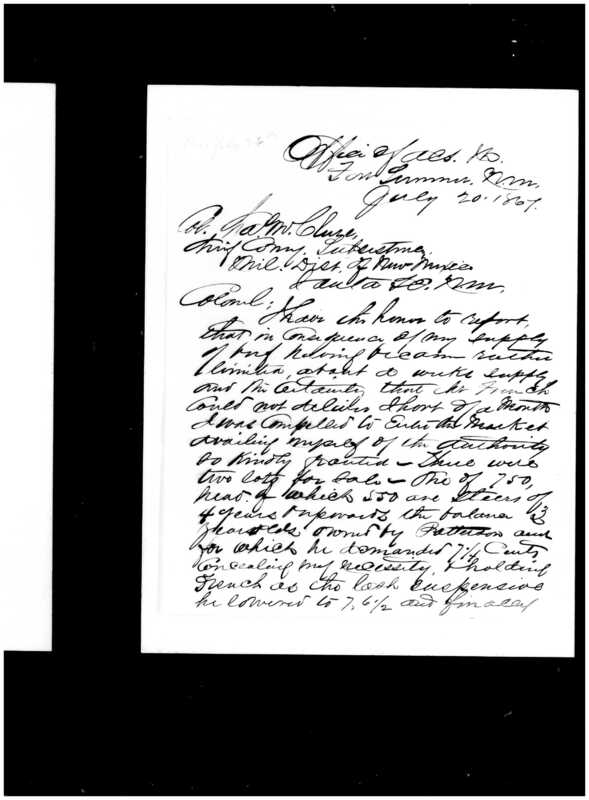 Office of A.C.S. U.S.
Fort Sumner, N.M.
July 20. 1867.
Col.
Chief Comy. Subsistence
Mil. Dist. of New Mexico
Santa Fe. N.M.
Colonel:
I have the honor to report,
that in consequence of my supply
of beef having become rather
limited, about a weeks supply
and the certainty that Mr French
could not deliver short of a month
I was compelled to enter the market
availing myself of the authority
so kindly granted — There were
two lots for sale — one of 750,
head. of which 550 are steers of
4 years & upwards the balance 3
year olds owned by Patterson and
for which he demanded 7 1/4 cents
Concealing my necessity, & holding
French as the less expensive
he lowered to 7, 6 1/2 and finally